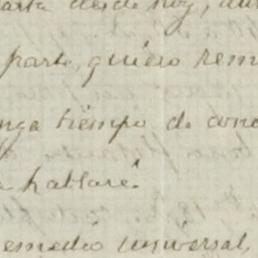 arta desde hoy, au
parte, quiero rem
nga tiempo de con
a hablaré.
emedio universal,